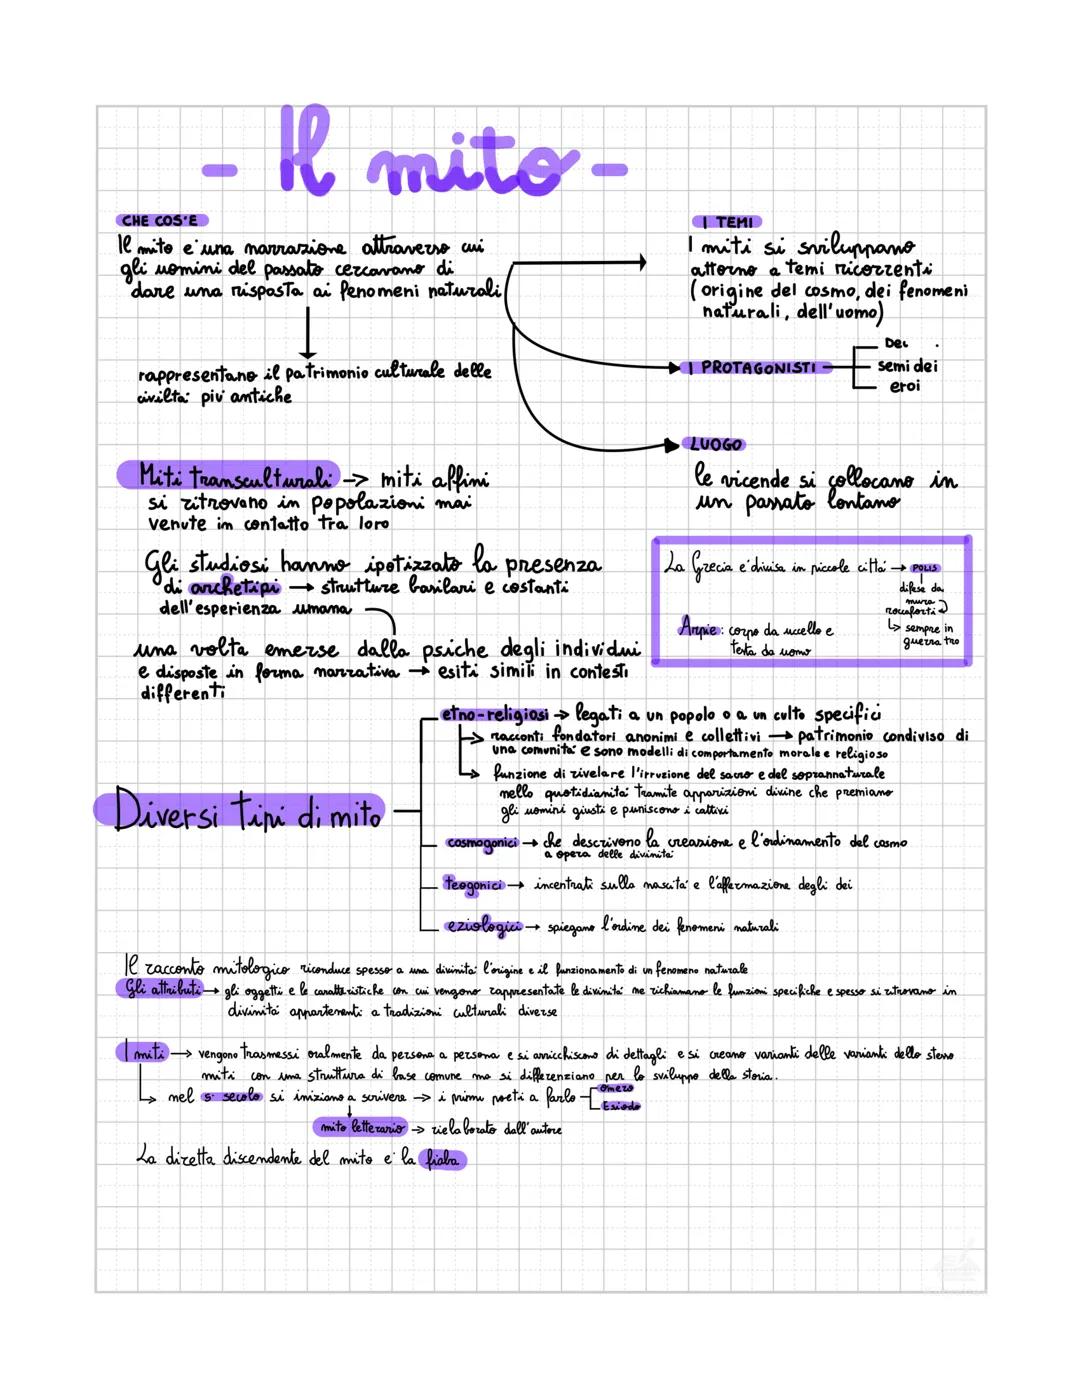 - Il mito -
CHE COS'E
Il mito e' una narrazione attraverso cui
gli uomini del passato cercavano di
dare una risposta ai fenomeni naturali
rappresentano il patrimonio culturale delle
civiltà piu' antiche
I TEMI
I miti si sviluppano
attorno a temi ricorrenti
(origine del cosmo, dei fenomeni
naturali, dell'uomo)
I PROTAGONISTI
Dei
semidei
eroi
LUOGO
le vicende si collocano in
un passato lontano
Miti transculturali -> miti affini
si ritrovano in popolazioni mai
venute in contatto tra loro
Gli studiosi hanno ipotizzato la presenza
di archetipi → strutture barilari e costanti
dell'esperienza umana
una volta emerse dalla psiche degli individui
e disposte in forma narrativa → esiti simili in contesti
differenti
La Grecia e' divisa in piccole città → POLIS
difese da
mura
roccaforti
↳ sempre in
guerra tra
Arpie: corpo da uccello e
testa da uomo
Diversi tipi di mito
etno-religiosi → legati a un popolo o a un culto specifici
→ racconti fondatori anonimi e collettivi → patrimonio condiviso di
una comunità e sono modelli di comportamento morale e religioso
→ funzione di rivelare l'irruzione del sacro e del soprannaturale
nello quotidianità tramite apparizioni divine che premiano
gli uomini giusti e puniscono i cattivi
cosmogonici → che descrivono la creazione e l'ordinamento del cosmo
a opera delle divinità
teogonici → incentrati sulla nascita e l'affermazione degli dei
eziologici → spiegano l'ordine dei fenomeni naturali
Il racconto mitologico riconduce spesso a una divinità l'origine e il funzionamento di un fenomeno naturale
Gli attributi → gli oggetti e le caratteristiche con cui vengono rappresentate le divinità ne richiamano le funzioni specifiche e spesso si ritrovano in
divinità appartenenti a tradizioni culturali diverse
I miti → vengono trasmessi oralmente da persona a persona e si arricchiscono di dettagli e si creano varianti delle varianti dello stesso
miti con una struttura di base comune ma si differenziano per lo sviluppo della storia.
↳ nel 5° secolo si iniziano a scrivere → i primi poeti a farlo
Omero
Esiodo
mito letterario → rielaborato dall'autore
La diretta discendente del mito e' la fiaba